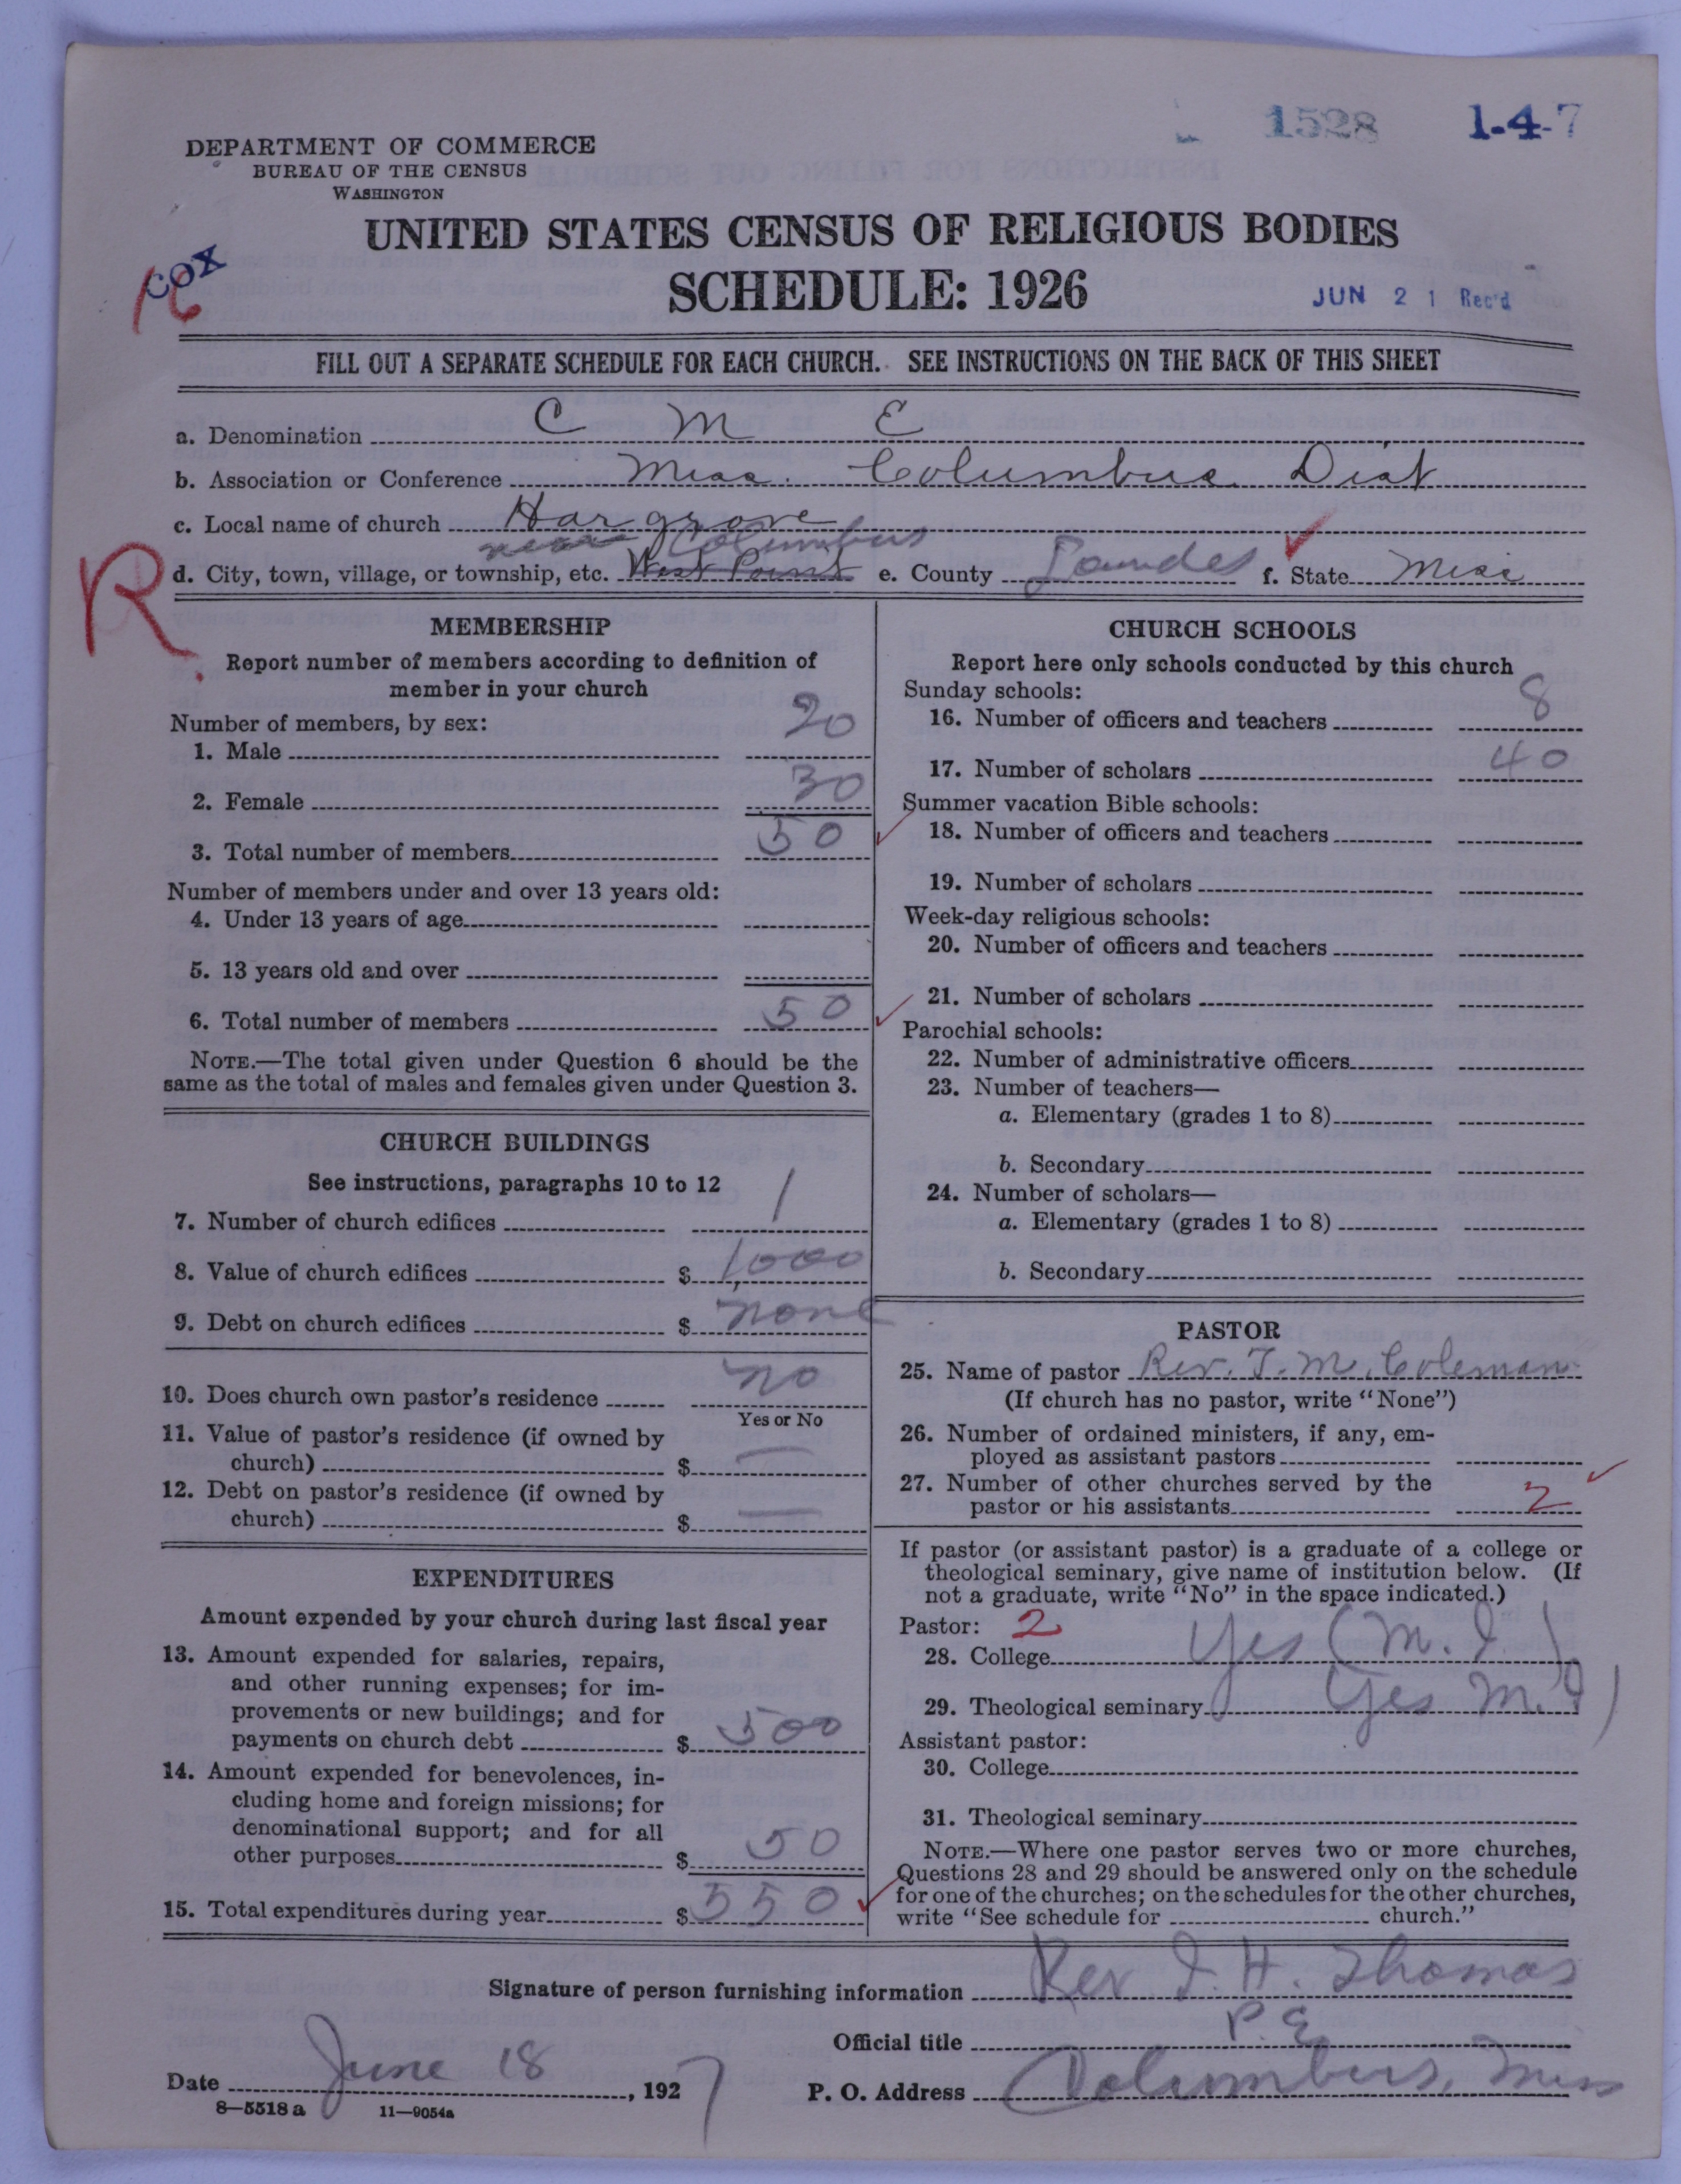 1528 1-4-7
DEPARTMENT OF COMMERCE
BUREAU OF THE CENSUS
WASHINGTON
UNITED STATES CENSUS OF RELIGIOUS BODIES
COX
16
SCHEDULE: 1926
JUN 21 Rec'd
FILL OUT A SEPARATE SCHEDULE FOR EACH CHURCH. SEE INSTRUCTIONS ON THE BACK OF THIS SHEET
a. Denomination C M E
b. Association or Conference Miss. Columbus Dist
c. Local name of church Hargrove
near Columbus
R
d. City, town, village, or township, etc. West Point e. County Lowndes f. State Miss
MEMBERSHIP
Report number of members according to definition of
member in your church
Number of members, by sex:
1. Male 20
2. Female 30
3. Total number of members 50
Number of members under and over 13 years old:
4. Under 13 years of age
5. 13 years old and over
6. Total number of members 50
NOTE.—The total given under Question 6 should be the
same as the total of males and females given under Question 3.
CHURCH BUILDINGS
See instructions, paragraphs 10 to 12
7. Number of church edifices 1
8. Value of church edifices $ 1,000
9. Debt on church edifices $ none
10. Does church own pastor's residence no
Yes or No
11. Value of pastor's residence (if owned by
church) $ —
12. Debt on pastor's residence (if owned by
church) $ —
EXPENDITURES
Amount expended by your church during last fiscal year
13. Amount expended for salaries, repairs,
and other running expenses; for im-
provements or new buildings; and for
payments on church debt $ 500
14. Amount expended for benevolences, in-
cluding home and foreign missions; for
denominational support; and for all
other purposes $ 50
15. Total expenditures during year $ 550
CHURCH SCHOOLS
Report here only schools conducted by this church
Sunday schools:
16. Number of officers and teachers 8
17. Number of scholars 40
Summer vacation Bible schools:
18. Number of officers and teachers
19. Number of scholars
Week-day religious schools:
20. Number of officers and teachers
21. Number of scholars
Parochial schools:
22. Number of administrative officers
23. Number of teachers—
a. Elementary (grades 1 to 8)
b. Secondary
24. Number of scholars—
a. Elementary (grades 1 to 8)
b. Secondary
PASTOR
25. Name of pastor Rev. T. M. Coleman
(If church has no pastor, write "None")
26. Number of ordained ministers, if any, em-
ployed as assistant pastors
27. Number of other churches served by the
pastor or his assistants 2
If pastor (or assistant pastor) is a graduate of a college or
theological seminary, give name of institution below. (If
not a graduate, write "No" in the space indicated.)
Pastor: 2
28. College Yes (M. I)
29. Theological seminary (Yes M. I)
Assistant pastor:
30. College
31. Theological seminary
NOTE.—Where one pastor serves two or more churches,
Questions 28 and 29 should be answered only on the schedule
for one of the churches; on the schedules for the other churches,
write "See schedule for church."
Signature of person furnishing information Rev. I. H. Thomas
Official title P. E.
Date June 18, 1927 P. O. Address Columbus, Miss
8—5518 a 11—9054a